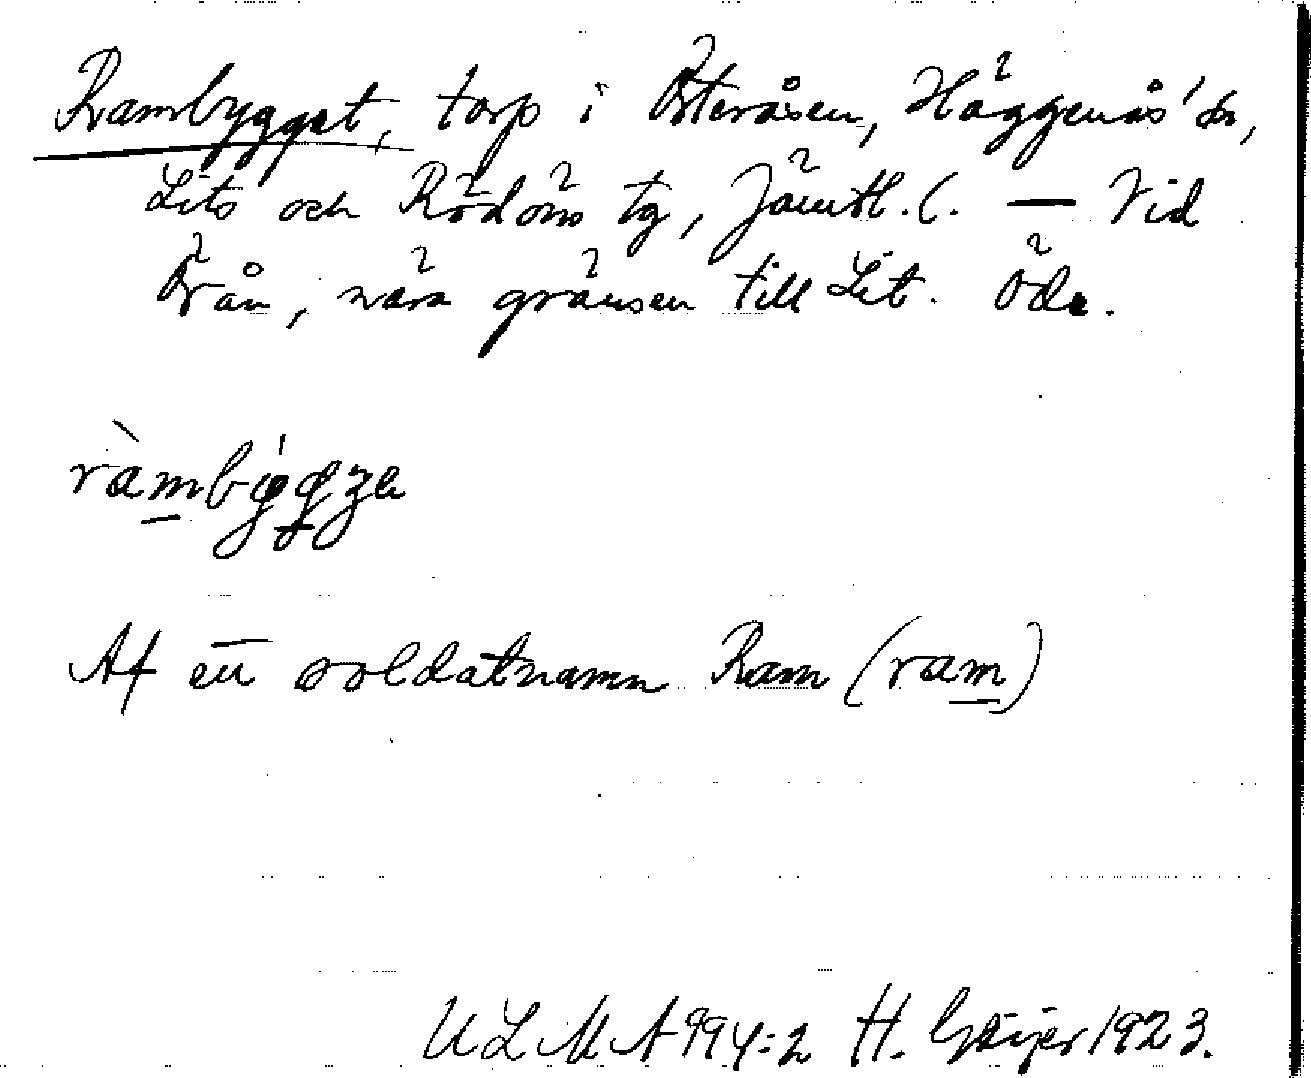 Rambygget, torp i Österåsen, Häggenås' sn,
Lits och Rödöns tg, Jämtl. l. — Vid
Örån, nära gränsen till Lit. Öde.
Af ett soldatnamn Ram (ram)
ULMA 994:2 H. Geijer 1923.